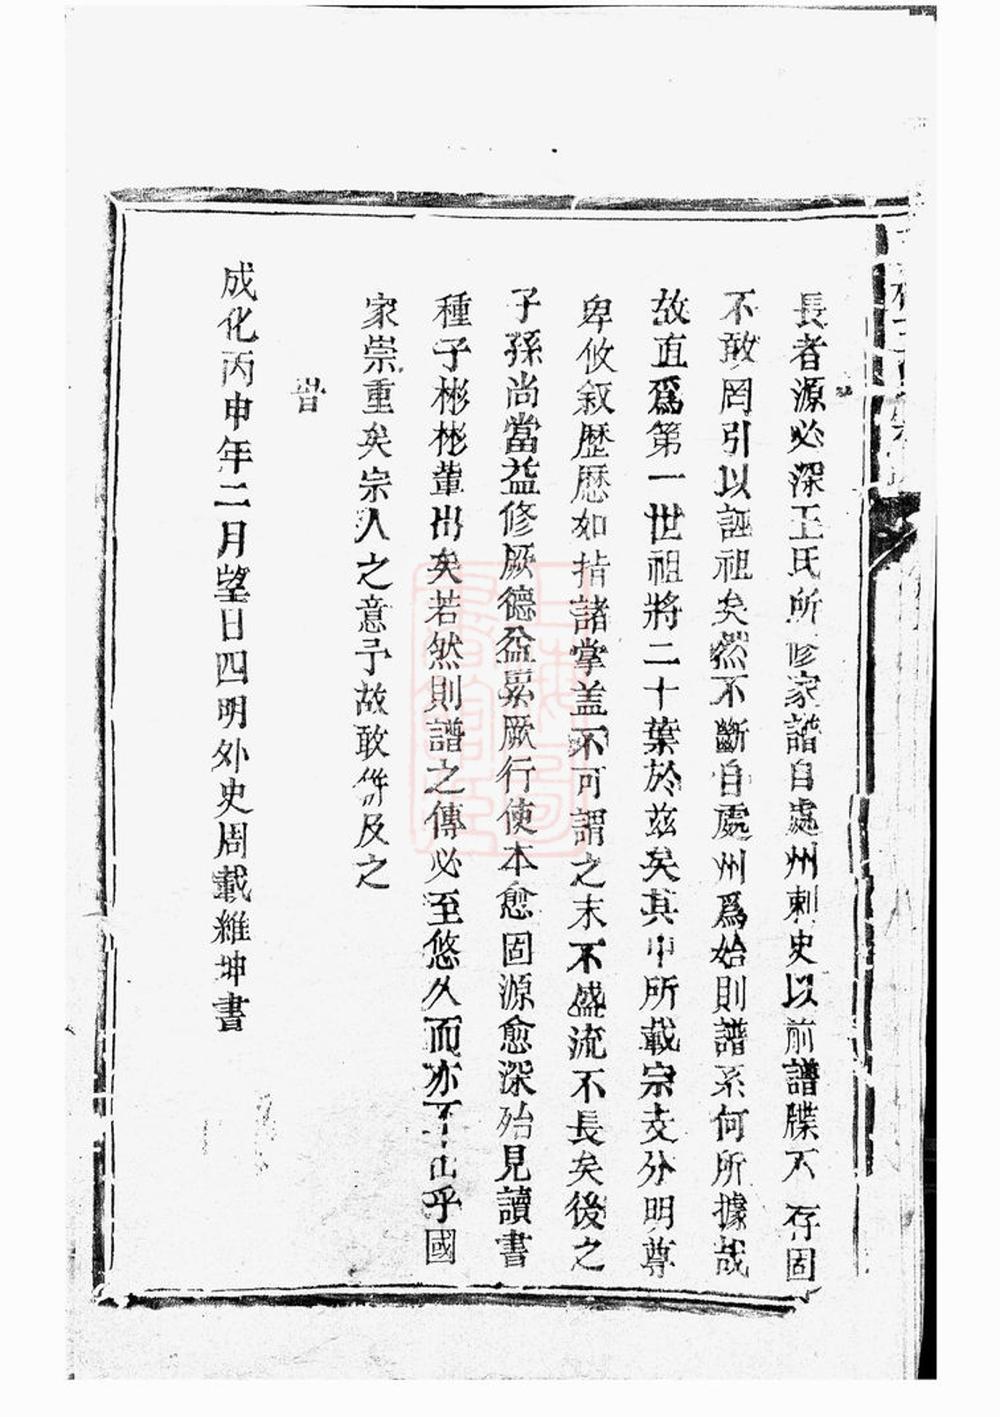 長者源必深王氏所修家譜自處州刺史以前譜牒不存固
不敢罔引以誣祖矣然不斷自處州爲始則譜系何所據哉
故直爲第一世祖將二十葉於茲矣其中所載宗支分明尊
卑攸敘歴歴如指諸掌盖不可謂之末不盛流不長矣後之
子孫尚當益修厥德益累厥行使本愈固源愈深殆見讀書
種子彬彬輩出矣若然則譜之傳必至悠久而亦不出乎國
家崇重矣宗人之意予故敢併及之
昔
成化丙申年二月望日四明外史周載維坤書